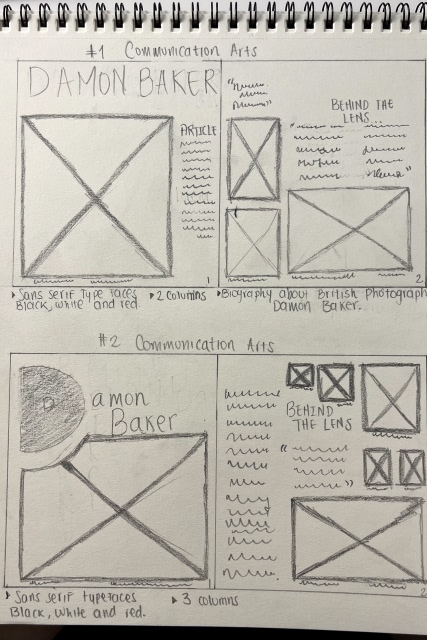 #1 Communication Arts
DAMON BAKER
ARTICLE
BEHIND THE
LENS...
1
2
Sans serif type faces
Black, white and red
2 columns
Biography about British Photograph
Damon Baker.
#2 Communication Arts
D
amon
Baker
BEHIND
THE LENS
2
Sans serif typefaces
Black, white and red.
3 columns